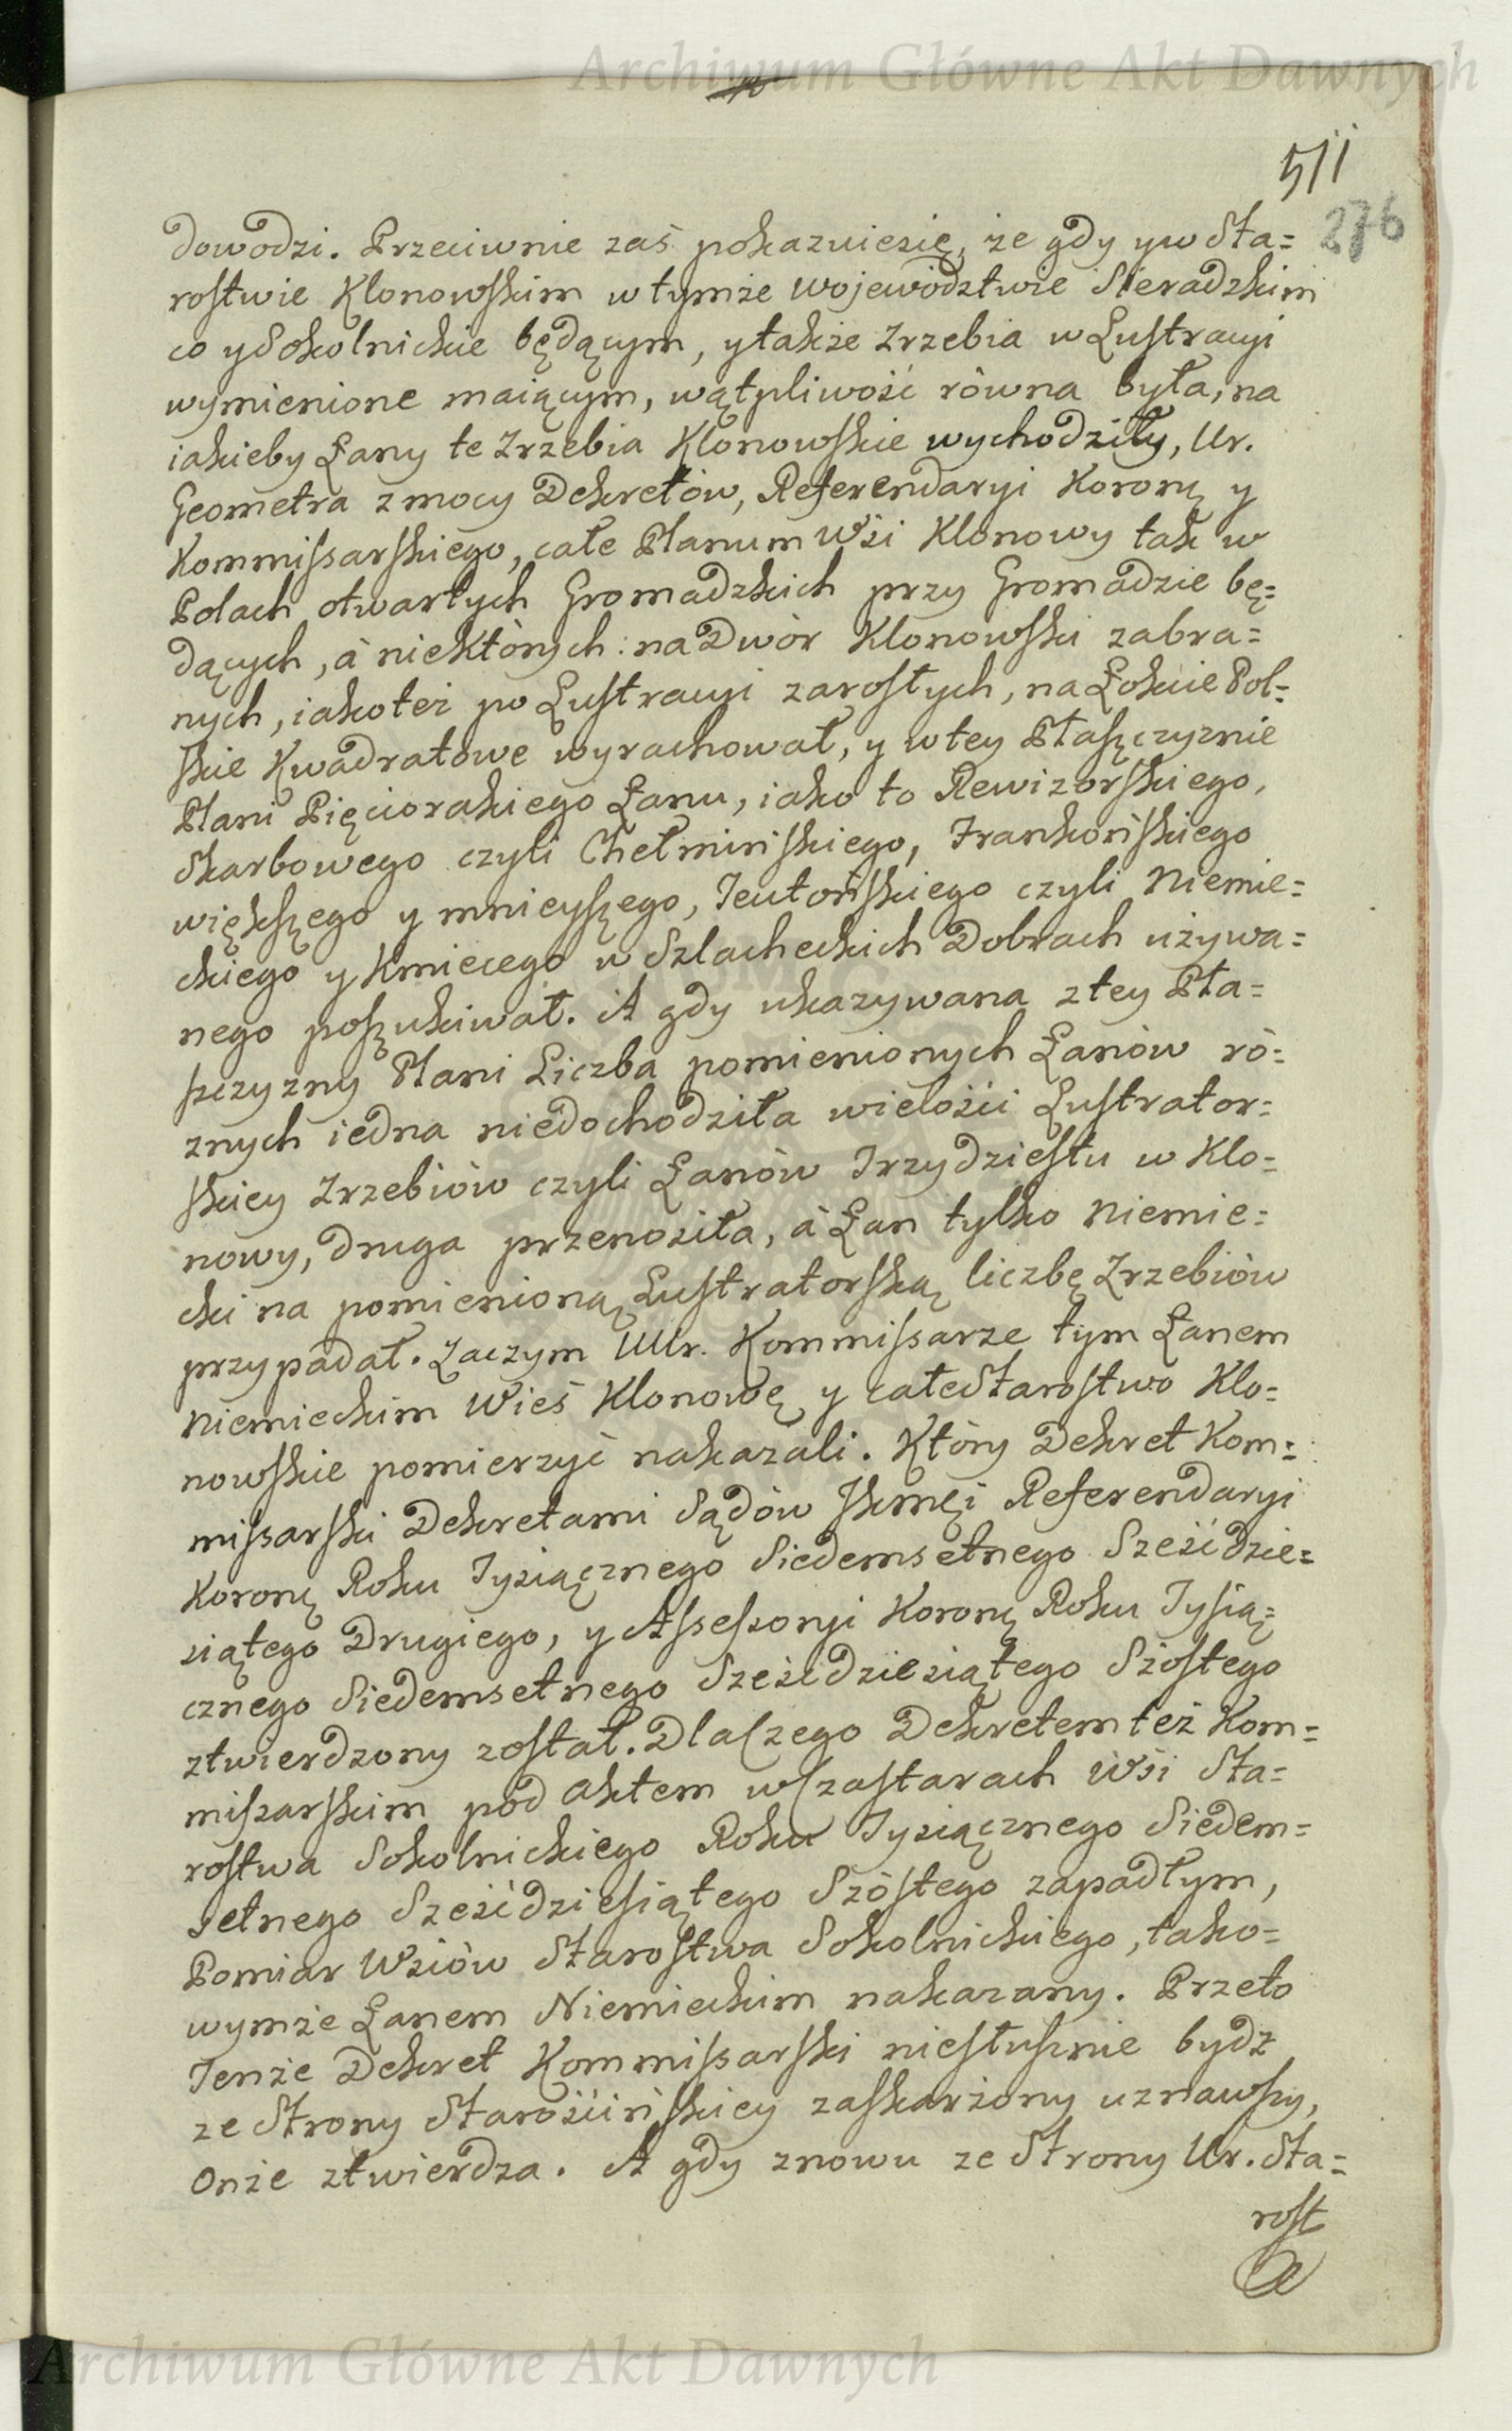 Archiwum Główne Akt Dawnych
511
276
dowodzi. Przeciwnie zaś pokazuiesię, że gdy yw Sta=
rostwie Klonowskim w tymże Województwie Sieradzkim
co y Sokolnickie będącym, y także Zrzebia w Lustracyi
wymienione maiącym, wątpliwość równa była, na
iakieby Łany te Zrzebia Klonowskie wychodziły, Ur.
Geometra z mocy Dekretów, Referendaryi Koronṇ y
Kommissarskiego, całe Planum Wśi Klonowy tak w
Polach otwartych Gromadzkich przy Gromadzie bę=
dących, à niektórych: na Dwòr Klonowski zabra=
nych, iakoteż po Lustracyi zarosłych, na Łokcie Pol=
skie Kwadratowe wyrachował, y w tey Płaszczyznie
Plani Pięciorakiego Łanu, iako to Rewizorskiego,
Skarbowego czyli Chełmińskiego, Frankońskiego
większego y mnieyszego, Teutońskiego czyli Niemie=
ckiego y Kmiecego w Szlacheckich Dobrach używa=
nego poszukiwał. A gdy ukazywana z tey Pła=
szczyzny Plani Liczba pomienionych Łanów ró=
znych iedna niedochodziła wielości Lustrator=
skiey Zrzebiów czyli Łanów Trzydziestu w Klo=
nowy, druga przenosiła, à Łan tylko Niemie=
cki na pomienioną Lustratorską liczbę Zrzebiów
przypadał. Zaczym UUr. Kommissarze tym Łanem
Niemieckim Wieś Klonowę y całe Starostwo Klo=
nowskie pomierzyć nakazali. Który Dekret Kom=
missarski Dekretami Sądów JKmci Referendaryi
Koronṇ Roku Tysiącznego Siedemsetnego Sześćdzie=
siątego Drugiego, y Assessoryi Koronṇ Roku Tysią=
cznego Siedemsetnego Sześćdziesiątego Szóstego
ztwierdzony został. Dlaczego Dekretem też Kom=
missarskim pod aktem w Szastarach Wśi Sta=
rostwa Sokolnickiego Roku Tysiącznego Siedem=
setnego Sześćdziesiątego Szóstego zapadłym,
Pomiar Wsiów Starostwa Sokolnickiego, tako=
wymże Łanem Niemieckim nakazany. Przeto
Tenże Dekret Kommissarski niesłusznie bydz
ze Strony Starościńskiey zaskarżony uznawszy,
Onże ztwierdza. A gdy znowu ze Strony Ur. Sta=
rost
Archiwum Główne Akt Dawnych